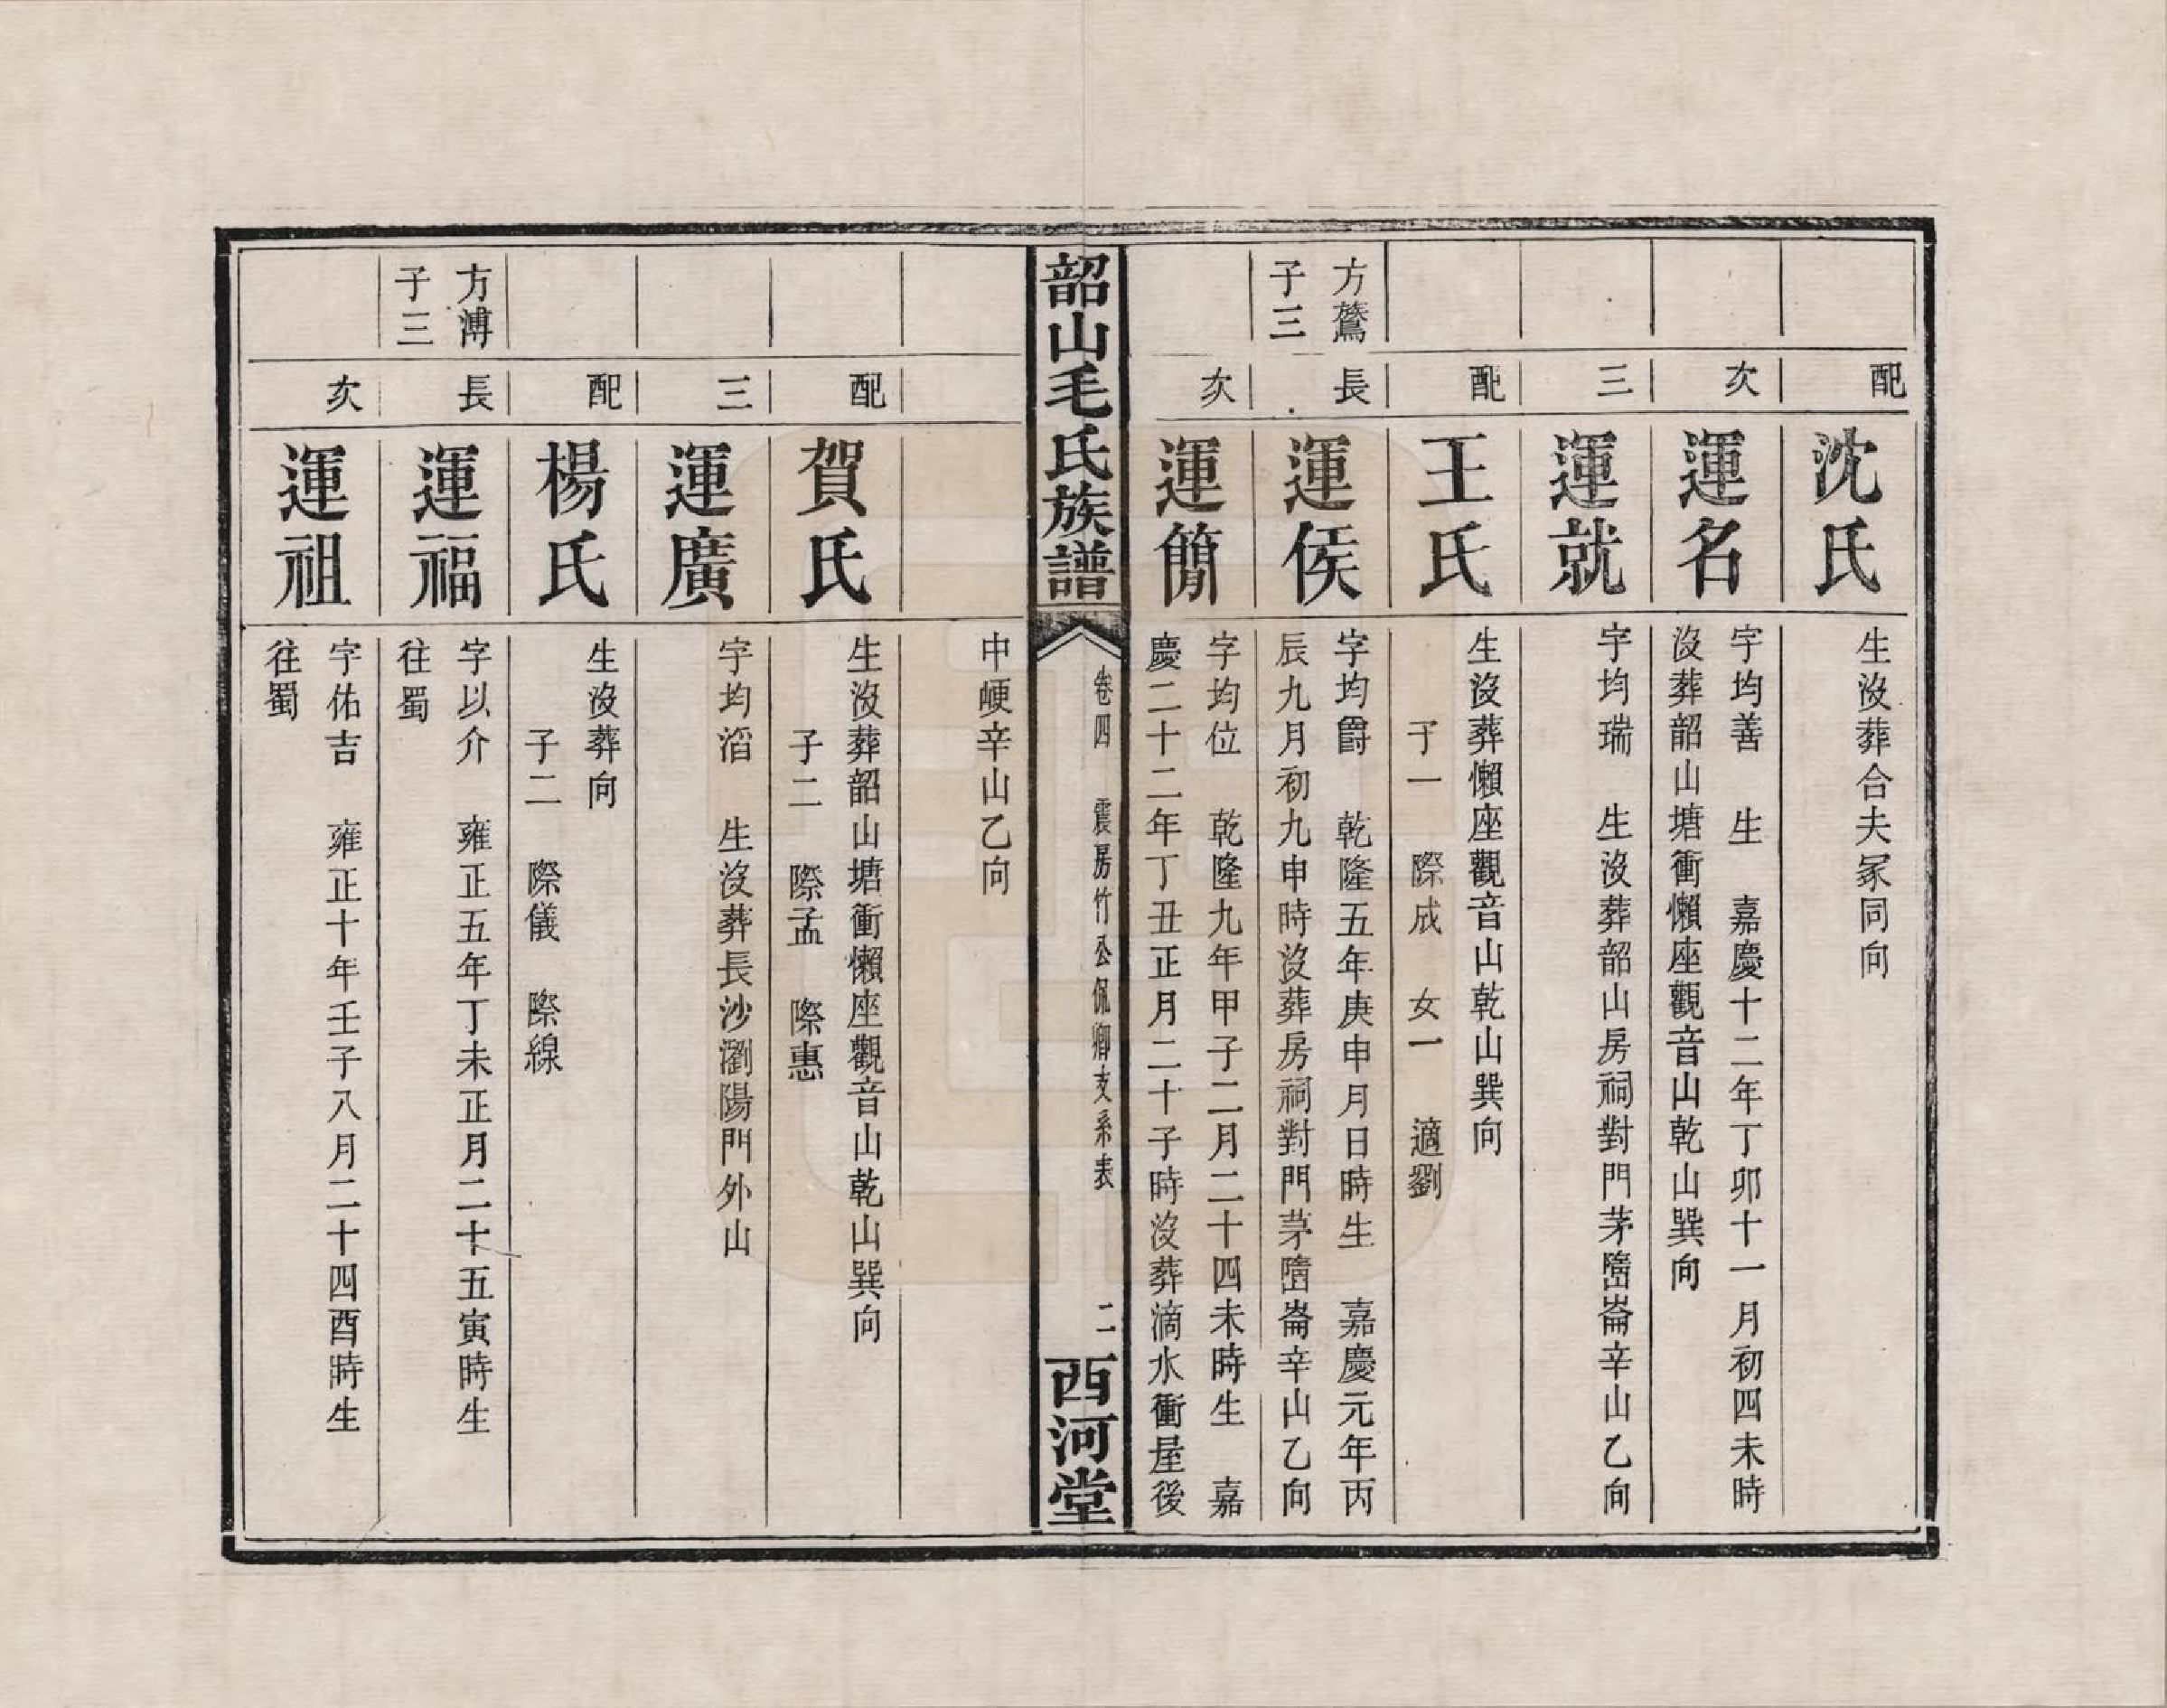 配
沈氏
生沒葬合夫冢同向
次
運名
字均善 生 嘉慶十二年丁卯十一月初四未時
沒葬韶山塘衝懶座觀音山乾山巽向
三
運就
字均瑞 生沒葬韶山房祠對門茅㟅崙辛山乙向
配
王氏
生沒葬懶座觀音山乾山巽向
子一 際成 女一 適劉
方鶩
子三
長
運侯
字均爵 乾隆五年庚申月日時生 嘉慶元年丙
辰九月初九申時沒葬房祠對門茅㟅崙辛山乙向
次
運簡
字均位 乾隆九年甲子二月二十四未時生 嘉
慶二十二年丁丑正月二十子時沒葬滴水衝屋後
韶山毛氏族譜
卷四 震房竹公侃卿支系表 二
西河堂
中㟅辛山乙向
配
賀氏
生沒葬韶山塘衝懶座觀音山乾山巽向
子二 際孟 際惠
三
運廣
字均滔 生沒葬長沙瀏陽門外山
配
楊氏
生沒葬向
子二 際儀 際線
方溥
子三
長
運福
字以介 雍正五年丁未正月二十五寅時生
往蜀
次
運祖
字佑吉 雍正十年壬子八月二十四酉時生
往蜀